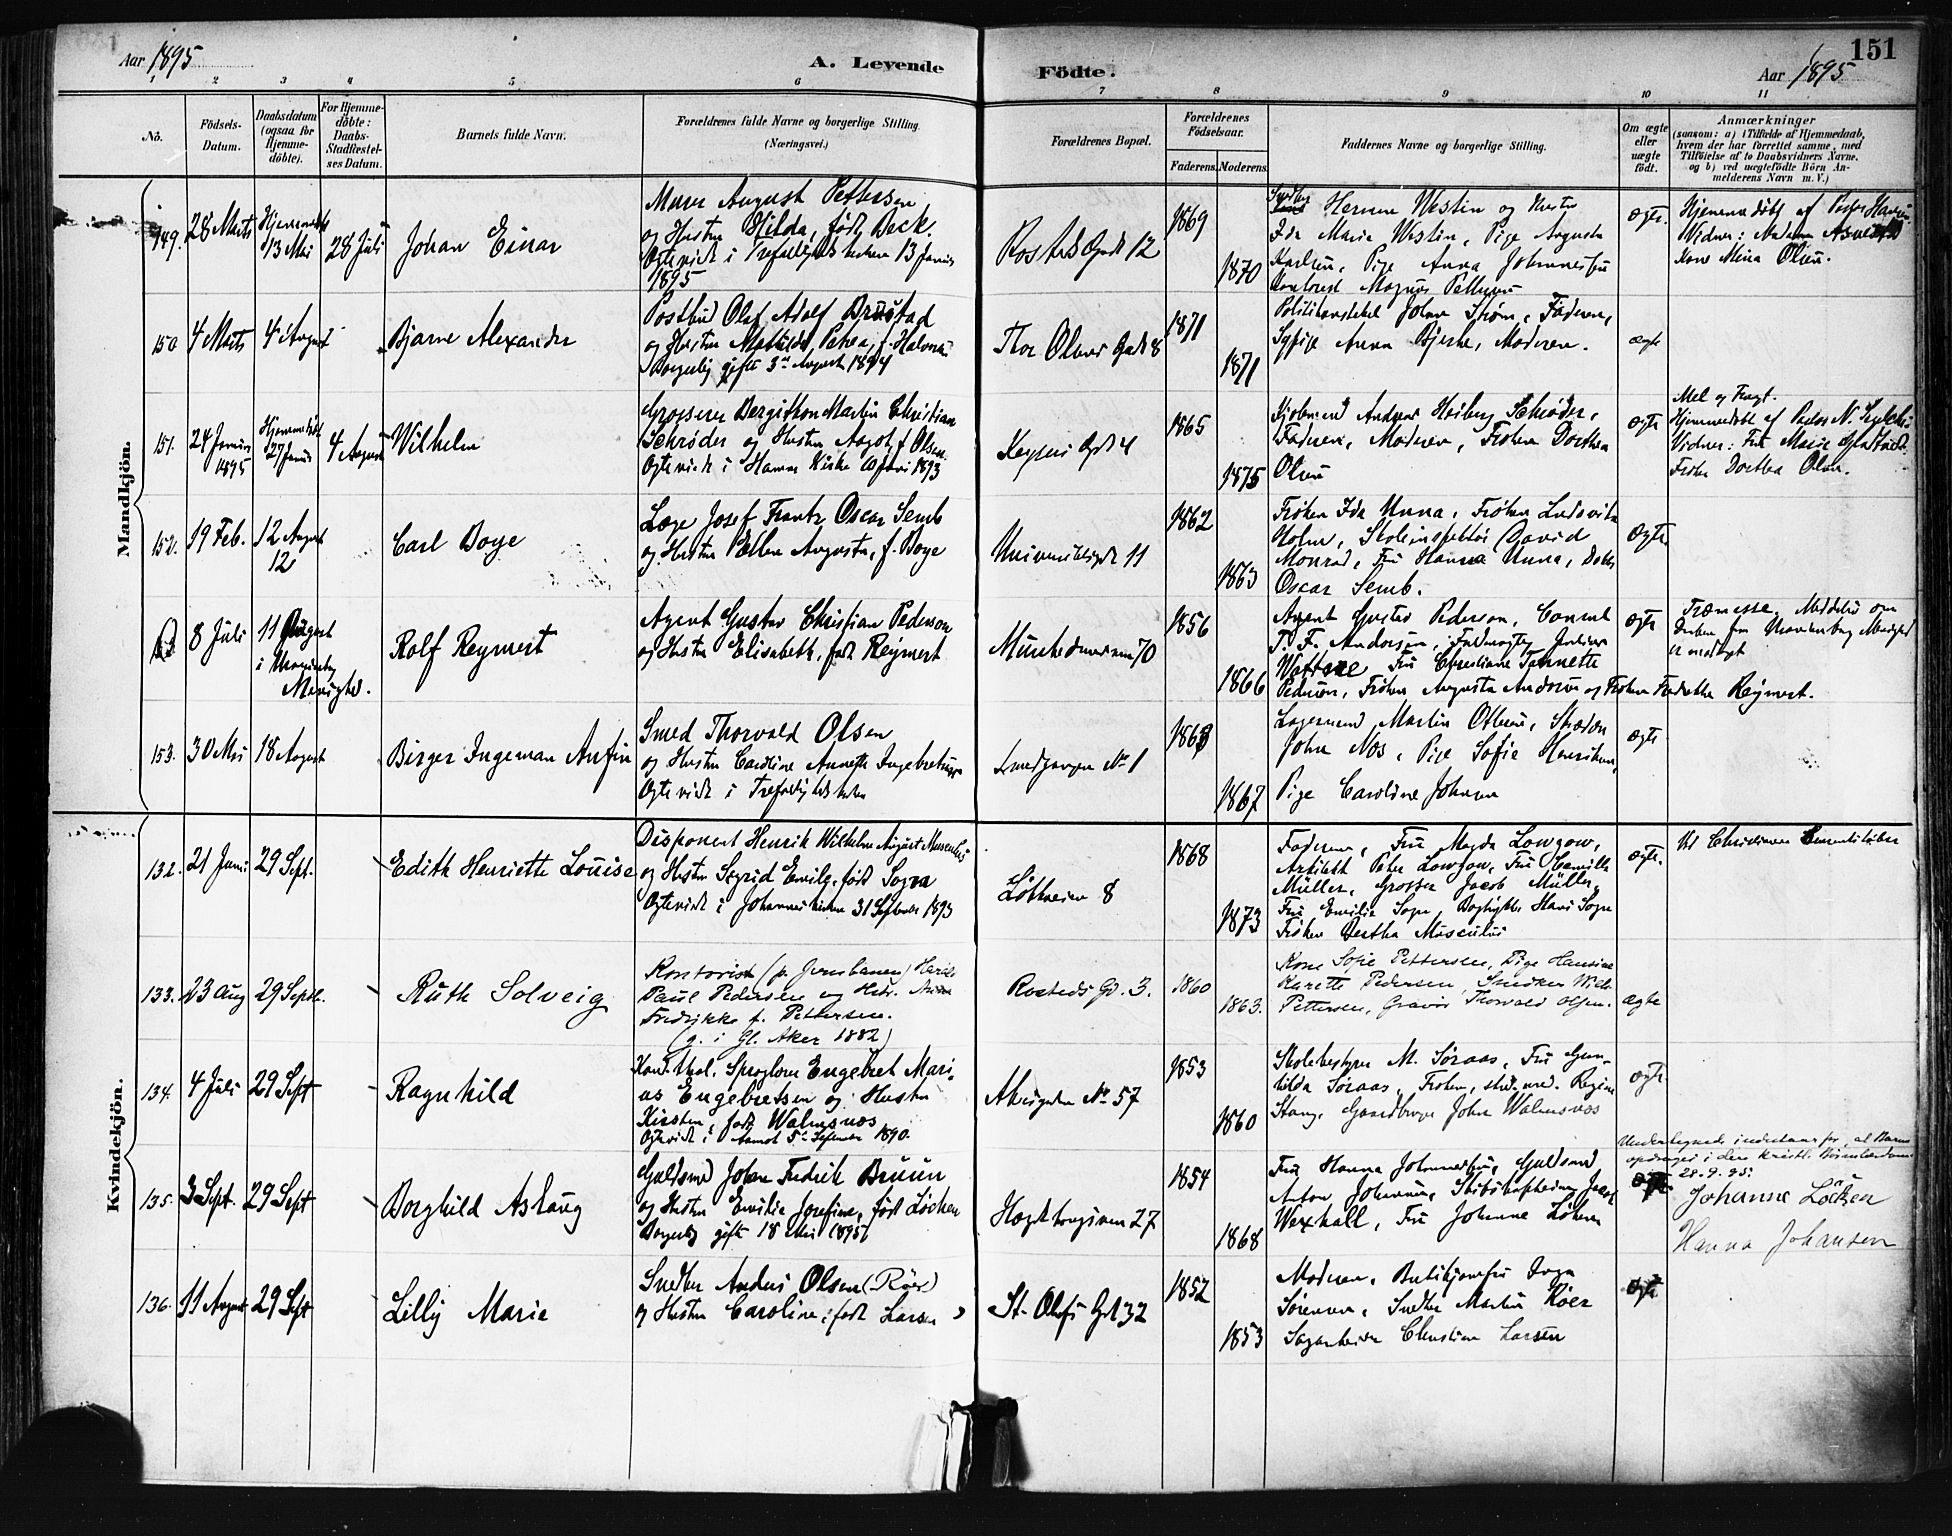 Aar 1895
A. Levende
Födte.
151
Aar 1895
1 2 3 4 5 6 7 8 9 10 11
No.
Födsels-
Datum.
Daabsdatum
(ogsaa for
Hjemme-
döbte).
For Hjemme-
döbte:
Daabs-
Stadfæstel-
ses Datum.
Barnets fulde Navn.
Forældrenes fulde Navne og borgerlige Stilling.
(Næringsvei.)
Forældrenes Bopæl.
Forældrenes
Födselsaar.
Faderens. Moderens.
Faddernes Navne og borgerlige Stilling.
Om ægte
eller
uægte
født.
Anmærkninger
(saasom: a) i Tilfælde af Hjemmedaab,
hvem der har forrettet samme, med
Tilföielse af to Daabsvidners Navne.
og b) ved uægtefödte Börn An-
melderens Navn m. V.)
Mandkjön.
149. 28 Marts
Hjemmedøbt
13 Mai
28 Juli
Johan Einar
Murer August Pettersen
og Hustru Hilda, født Beck.
Ægteviet i Trefoldighedskirken 13 Januar
1895
Rosteds Gade 12
1869
1870
Herman Westin og Hustru
Ida Marie Westin, Pige Augusta
Karlsen, Pige Anna Johannesen
Magnus Pettersen
ægte.
Hjemmedøbt af Pastor
Vidner:
Kone Mina Olsen.
150 4 Marts
4 August
Bjarne Alexander
Postbud Olaf Adolf Brustad
og Hustru Mathilde Petrea, f. Halvorsen
Borgerlig gifte 3 August 1894
Thor Olsens Gade 8
1871
1871
Politikonstabel Johan Strøm, Faderen,
Sypige Anna Bjerke, Moderen.
ægte
151. 24 Januar
1895
Hjemmedøbt
27 Januar
4 August
Wilhelm
Grosserer Bergithon Martin Christian
Schrøder og Hustru Aagot, f. Olsen.
Ægteviet i Hamar Kirke 1893
Keysers Gd 4
1865
1875
Kjøbmand Andreas Heiberg Schrøder,
Faderen, Moderen, Frøken Dorthea
Olsen
ægte
Mel og Frugt.
Hjemmedøbt af Pastor N.
Vidner: Fru Marie
Frøken Dorthea Olsen.
152. 19 Feb.
12 August
12
Carl Boye
Læge Josef Frantz Oscar Semb
og Hustru Ellen Augusta, f. Boye
Universitetsgt 11
1862
1863
Frøken Ida Unna, Frøken Ludovika
Holm, Skoleinspektør David
Monrad, Fru Hanna Unna, Doktor
Oscar Semb.
Ægte.
8 Juli
11 August
i
Menighed.
Rolf Reymert
Agent Gustav Christian Pederson
og Hustru Elisabeth, født Reymert
Munkedamsveien 70
1856
1866
Agent Gustav Pederson, Consul
T. F. Andersen, Fuldmægtig
Fru Christiane Tannette
Pederson, Frøken Augusta Andersen og Frøken Fredrikke Reymert.
ægte
Meddelelse om
Daaben fra Uranienborg Menighed
er modtagt
153. 30 Mai
18 August
Birger Ingeman Anfin
Smed Thorvald Olsen
og Hustru Caroline Annette Ingebretsen
Ægteviet i Trefoldighedskirken
Smedgangen No 1
1863
1867
Lagermand Martin Ottesen, Skrædder
Johan Nos, Pige Sofie Henriksen,
Pige Caroline Johnsen
ægte
Kvindekjön.
132. 21 Juni
29 Sept.
Edith Henriette Louise
Disponent Henrik Wilhelm August Musculus
og Hustru Sigrid Emily, født Sogn
Ægteviet i Johanneskirken 31 September 1893
Løkkeveien 8
1868
1873
Faderen, Fru Magda Lowzow,
Arkitekt Peter Lowzow, Fru Camilla
Müller, Grosser Jacob Müller,
Fru Emilie Sogn, Bogtrykker Hans Sogn
Frøken Bertha Musculus
ægte.
Ved Christiania Cementstøberi
133. 23 Aug
29 Septbr.
Ruth Solveig
Kontorist (p. Jernbanen) Harald
Paul Pedersen og Hstr. Anna
Fredrikke f. Pettersen.
(g. i Gl. Aker 1882)
Rosteds Gd. 3.
1860
1863.
Kone Sofie Pettersen, Pige Hansine
Karette Pedersen, Snedker Wilh.
Pettersen, Gravør Thorvald Olsen.
ægte
134. 4 Juli
29 Sept
Ragnhild
Kand. theol. Sproglærer Engebret Mari-
us Engebretsen og Hustru
Kirsten, født Walmsnæs
Ægteviet i Aamot 5 September 1890.
Akersgaden No 57
1853
1860
Skolebestyrer M. Søraas, Fru Gun-
hilda Søraas, Frøken, stud. med. Regine
Stang, Gaardbruger John Walmsnæs
ægte.
135. 3 Sept.
29 Sept
Borghild Aslaug
Guldsmed Johan Fredrik Bruun
og Hustru Emilie Josefine, født Løcken
Borgerlig gifte 18 Mai 1895
Hægdehaugsveien 27
1854
1868
Fru Hanna Johannesen, Guldsmed
Anton Johannesen, Skibskaptein Jacob
Wexhall, Fru Johanne Løken
Undertegnede indestaar for, at Barnet
opdrages i den kristl. Børnelærdom.
28-9-95.
Johanne Löcken
Hanna Johansen
136. 11 August
29 Sept
Lilly Marie
Snedker Anders Olsen (Röer)
og Hustru Caroline, født Larsen
St. Olafs Gd 32
1852
1853
Moderen, Butikjomfru Inga
Sørensen, Snedker Martin Röer
Sagarbeider Christian Larsen
ægte